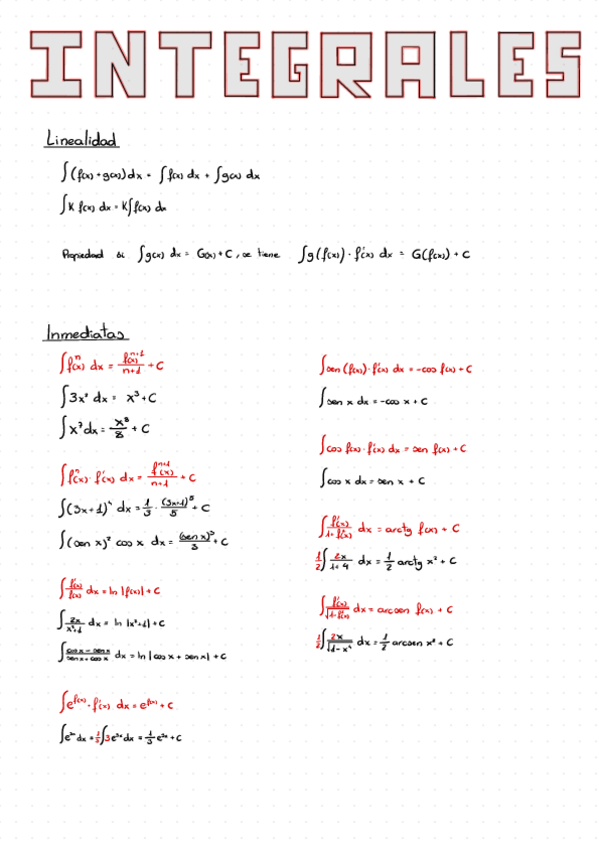 INTEGRALES
Linealidad
∫(f(x)+g(x))dx = ∫f(x) dx + ∫g(x) dx
∫K f(x) dx = K∫f(x) dx
Propiedad si ∫g(x) dx = G(x)+C, se tiene ∫g(f(x))·f'(x) dx = G(f(x))+C
Inmediatas
∫fⁿ(x) dx = f(x)ⁿ⁺¹/n+1 + C
∫3x² dx = x³+C
∫x⁷dx = x⁸/8 + C
∫fⁿ(x)·f'(x) dx = fⁿ⁺¹(x)/n+1 + C
∫(3x+1)⁴ dx = 1/3 · (3x+1)⁵/5 + C
∫(sen x)² cos x dx = (sen x)³/3 + C
∫f'(x)/f(x) dx = ln |f(x)| + C
∫2x/x²+1 dx = ln |x²+1| + C
∫cos x - sen x/sen x + cos x dx = ln |cos x + sen x| + C
∫e^f(x)·f'(x) dx = e^f(x) + C
∫e³ˣ dx = 1/3∫3e³ˣ dx = 1/3 e³ˣ + C
∫sen (f(x))·f'(x) dx = -cos f(x) + C
∫sen x dx = -cos x + C
∫cos f(x)·f'(x) dx = sen f(x) + C
∫cos x dx = sen x + C
∫f'(x)/1+f²(x) dx = arctg f(x) + C
1/2∫2x/1+4 dx = 1/2 arctg x² + C
∫f'(x)/√1-f²(x) dx = arcsen f(x) + C
1/2∫2x/√1-x⁴ dx = 1/2 arcsen x² + C